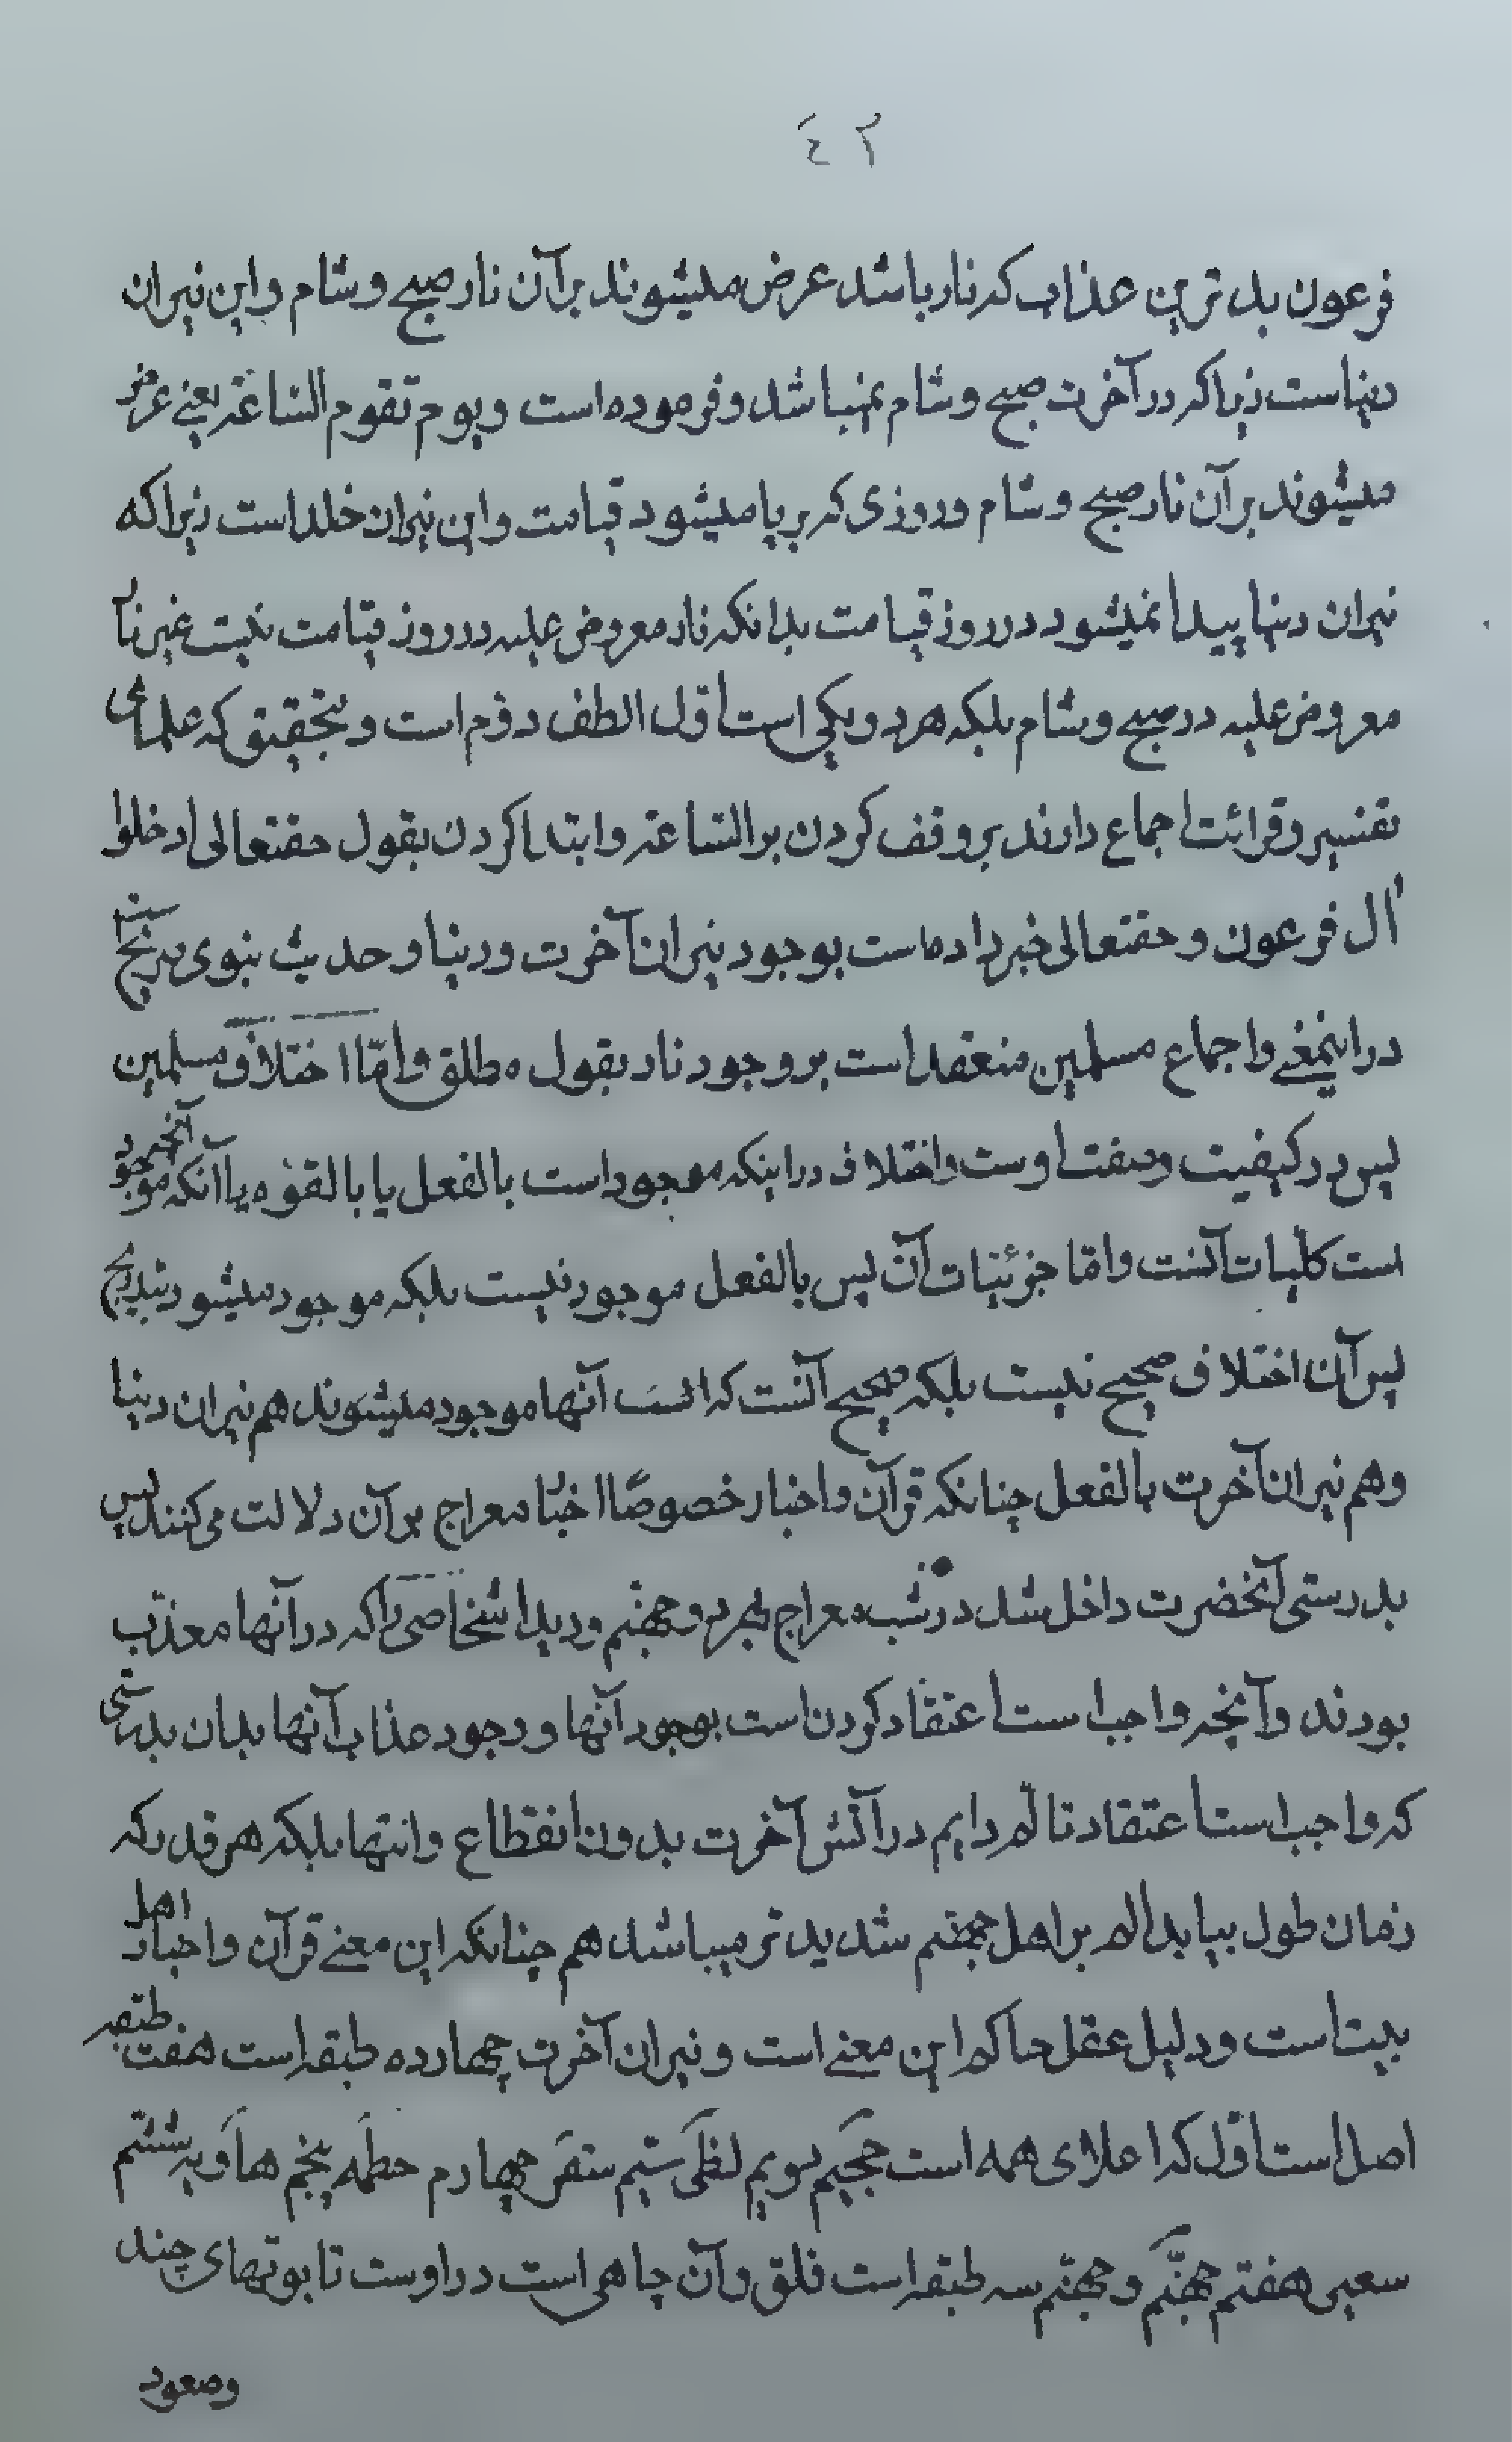 ٤٢
فرعون بدترین عذاب که نار باشد عرض میشوند برآن نار صبح وشام واین نیران
دنیاست زیرا که در آخرت صبح وشام نمیباشد وفرموده است ویوم تقوم الساعة یعنے عرض
میشوند برآن نار صبح وشام وروزی که برپا میشود قیامت واین نیران خلد است زیرا که
نیران دنیا پیدا نمیشود در روز قیامت بدانکه نار معروض علیه در روز قیامت نیست غیر نار
معروض علیه در صبح وشام بلکه هر دو یکی است اول الطف دوّم است وبتحقیق که علمای
تفسیر وقرائت اجماع دارند بر وقف کردن بر الساعة وابتدا کردن بقول حقتعالی ادخلوا
آل فرعون وحقتعالی خبر داده است بوجود نیران آخرت ودنیا وحدیث نبوی صریح است
در اینمعنے واجماع مسلمین منعقد است بر وجود نار بقول مطلق وامّا اختلاف مسلمین
پس در کیفیت وصفت اوست واختلاف در اینکه موجود است بالفعل یا بالقوّه یا آنکه آنچه موجود
است کلّیات آنست وامّا جزئیّات آن پس بالفعل موجود نیست بلکه موجود میشود بتدریج
پس آن اختلاف صحیح نیست بلکه صحیح آنست که آنها موجود میشوند هم نیران دنیا
وهم نیران آخرت بالفعل چنانکه قرآن واخبار خصوصًا اخبار معراج برآن دلالت می‌کنند پس
بدرستی آنحضرت داخل شد در شب معراج وجهنّم ودید اشخاصی را که در آنها معذّب
بودند وآنچه واجب است اعتقاد کردن است بوجود آنها ووجود عذاب آنها بدان بدرستی
که واجب است اعتقاد تالّم دایم در آتش آخرت بدون انقطاع وانتها بلکه هر قدر که
زمان طول بیابد الم بر اهل جهنّم شدیدتر میباشد هم چنانکه این معنے قرآن واخبار اهل
بیت است ودلیل عقل حاکم این معنے است ونیران آخرت چهارده طبقه است هفت طبقه
اصل است اوّل که اعلای همه است جحیم دویم لظی سیّم سقر چهارم حطمه پنجم هاویه ششم
سعیر هفتم جهنّم وجهنّم سه طبقه است فلق وآن چاهی است در اوست تابوتهای چند
وصعود